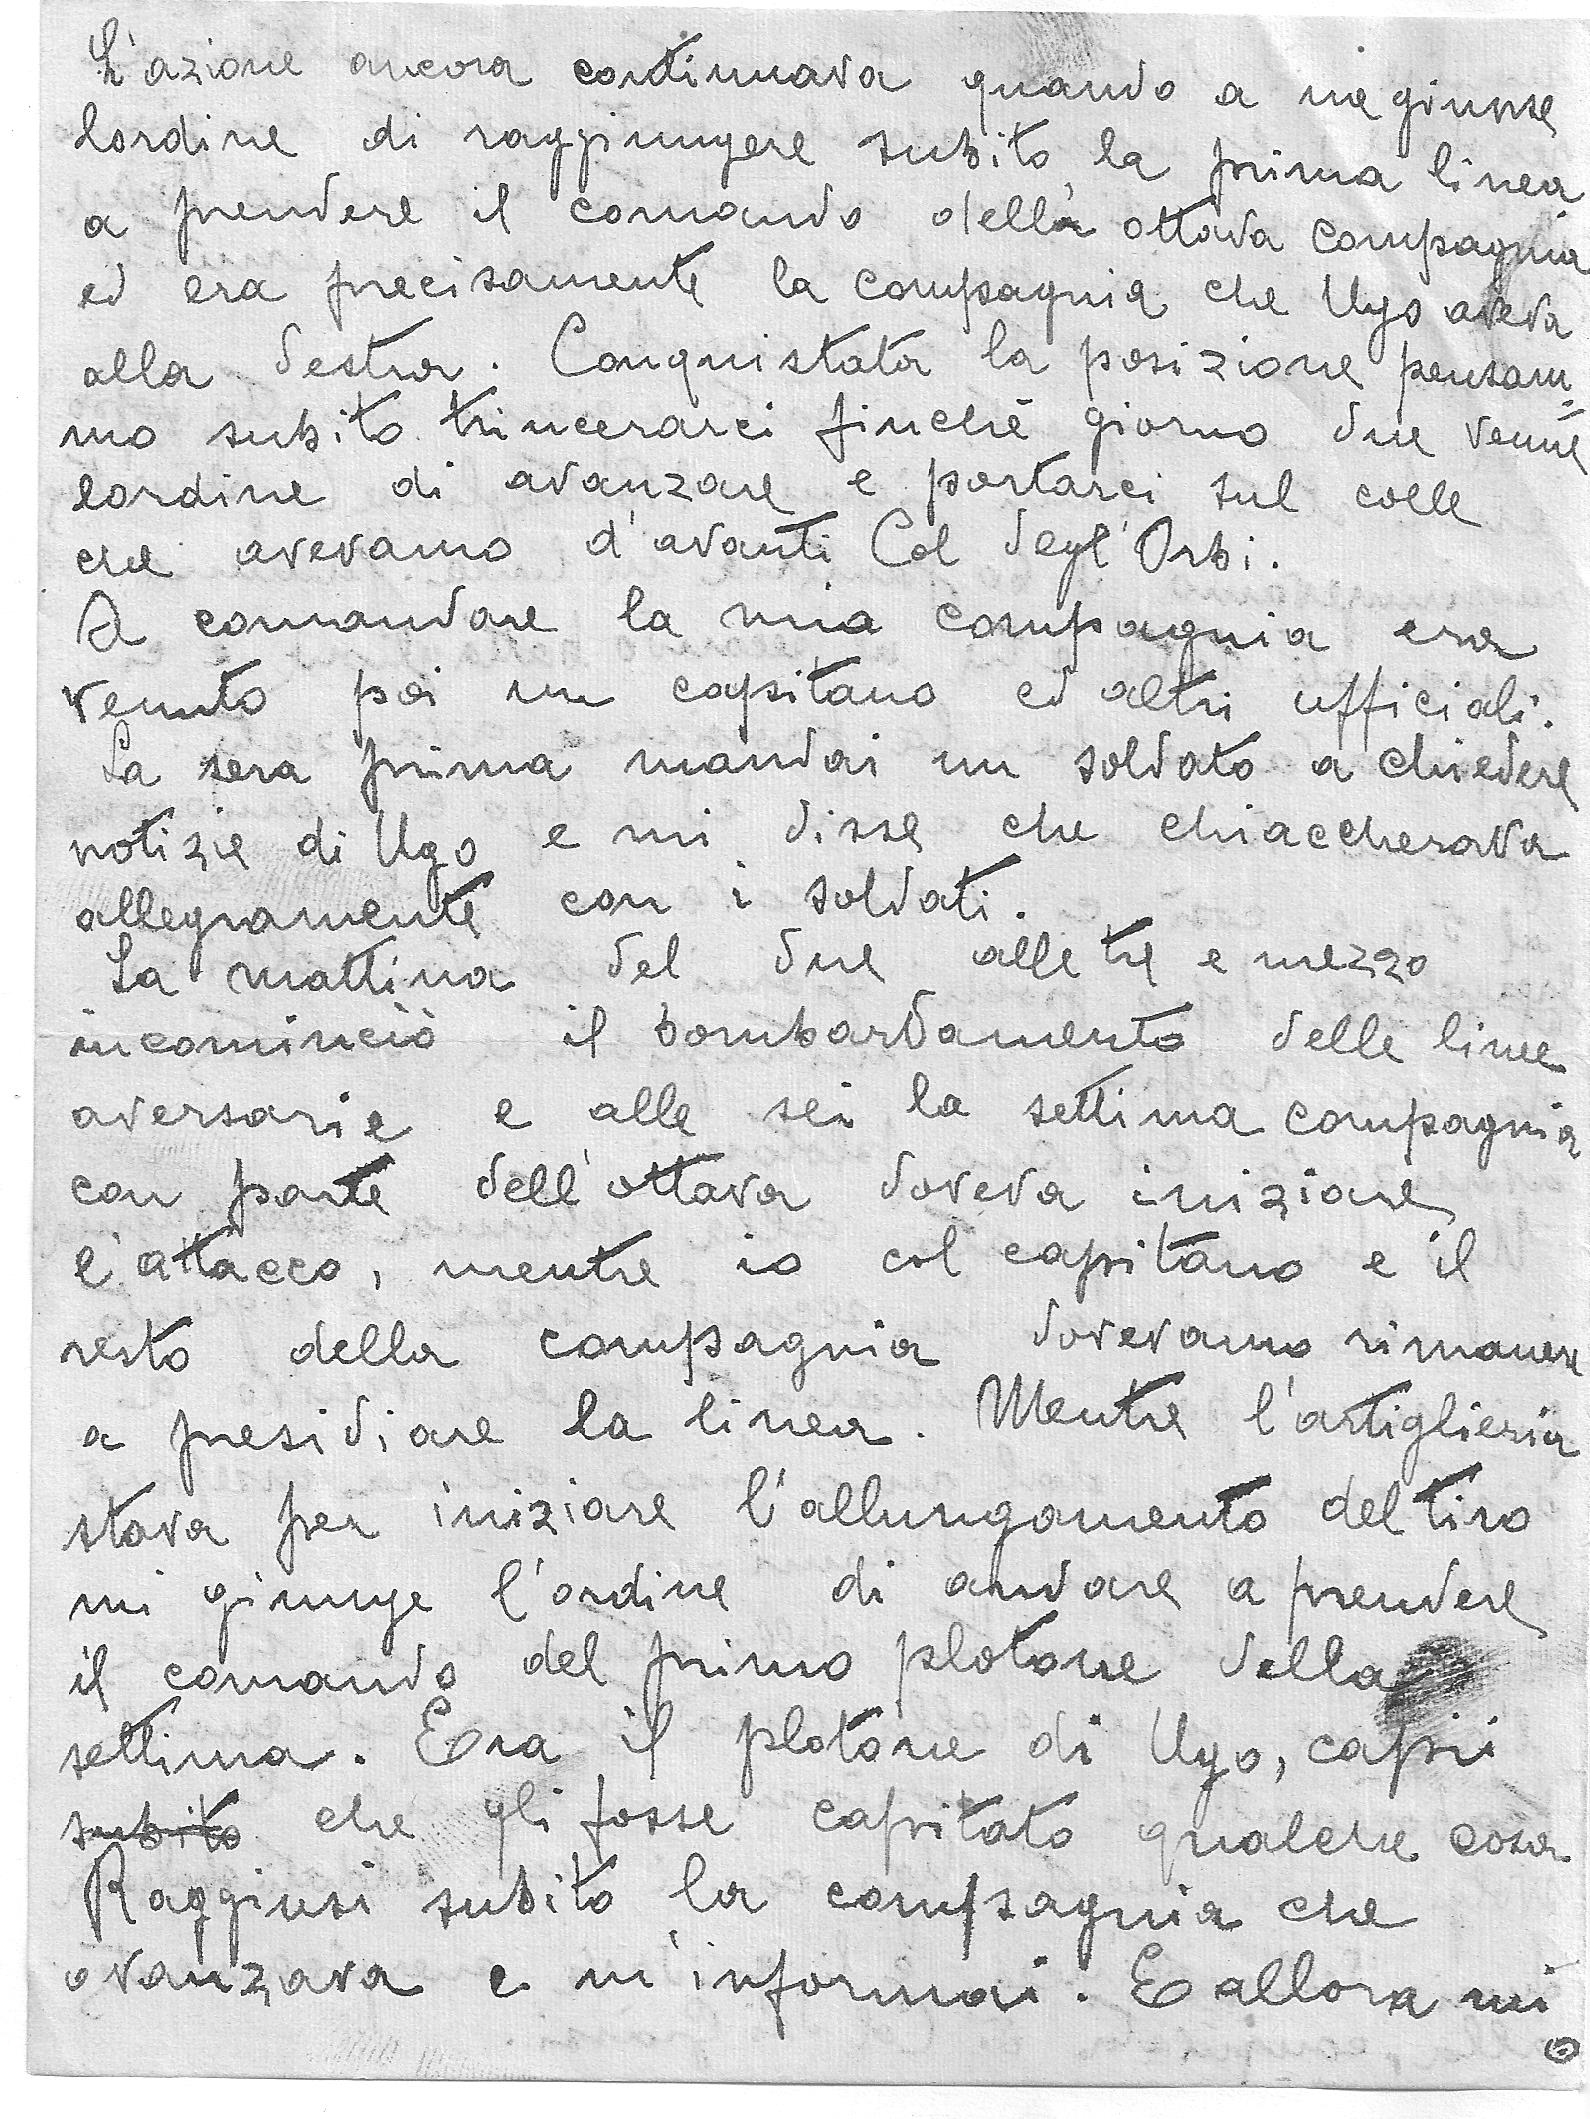 L'azione ancora continuava quando a me giunse
lordine di raggiungere subito la prima linea
a prendere il comando della ottava compagnia
ed era precisamente la compagnia che Ugo aveva
alla destra. Conquistata la posizione pensam=
mo subito trincerarci finchè giorno due venne
lordine di avanzare e portarci sul colle
che avevamo d'avanti Col degl'Orbi.
A comandare la mia compagnia era
venuto poi un capitano ed altri ufficiali.
La sera prima mandai un soldato a chiedere
notizie di Ugo e mi disse che chiaccherava
allegramente con i soldati.
La mattina del due alle tre e mezzo
incominciò il bombardamento delle linee
aversarie e alle sei la settima compagnia
con parte dell'ottava doveva iniziare
l'attacco, mentre io col capitano e il
resto della compagnia dovevamo rimanere
a presidiare la linea. Mentre l'artiglieria
stava per iniziare l'allungamento del tiro
mi giunge l'ordine di andare a prendere
il comando del primo plotone della
settima. Era il plotone di Ugo, capii
subito che gli fosse capitato qualche cosa
Raggiusi subito la compagnia che
avanzava e m'informai. E allora mi
6